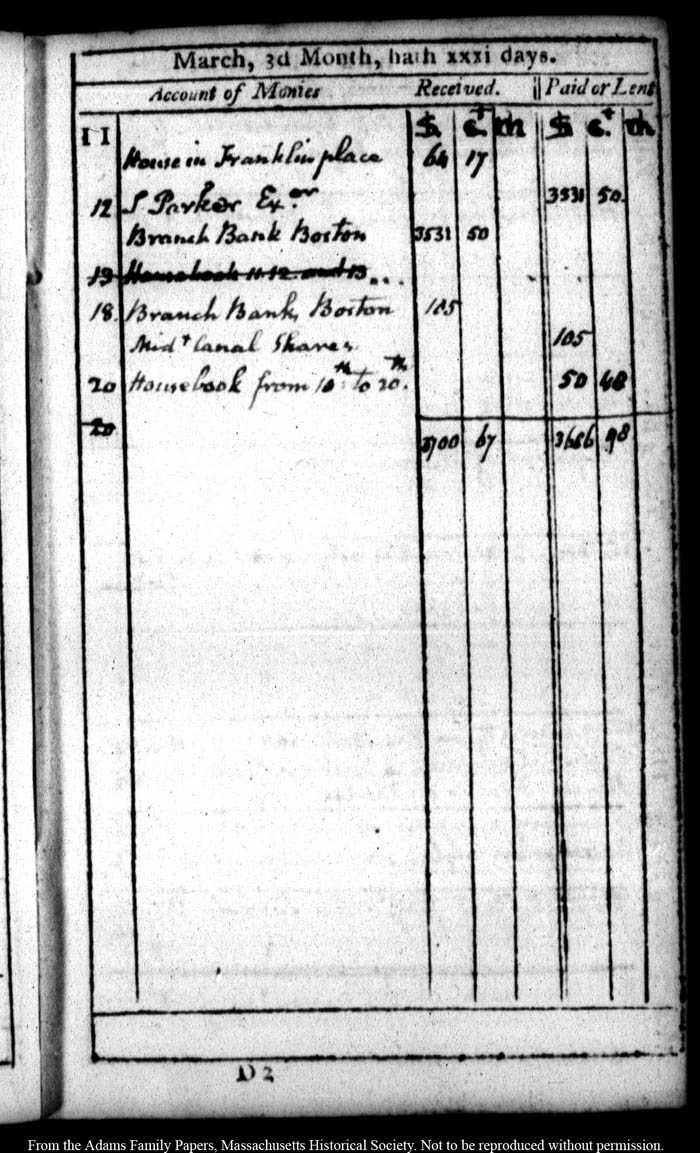 March, 3d Month, hath xxxi days.
Account of Monies Received. Paid or Lent
$ ct m $ ct m
11
House in Franklin place 64 17
12 S Parker Exor 3531 50.
Branch Bank Boston 3531 50
13 Housebook 11 12 and 13...
18. Branch Bank, Boston 105
Midt Canal Shares. 105
20 Housebook from 10th to 20th. 50 48
20
3700 67 3686 98
D 2
From the Adams Family Papers, Massachusetts Historical Society. Not to be reproduced without permission.